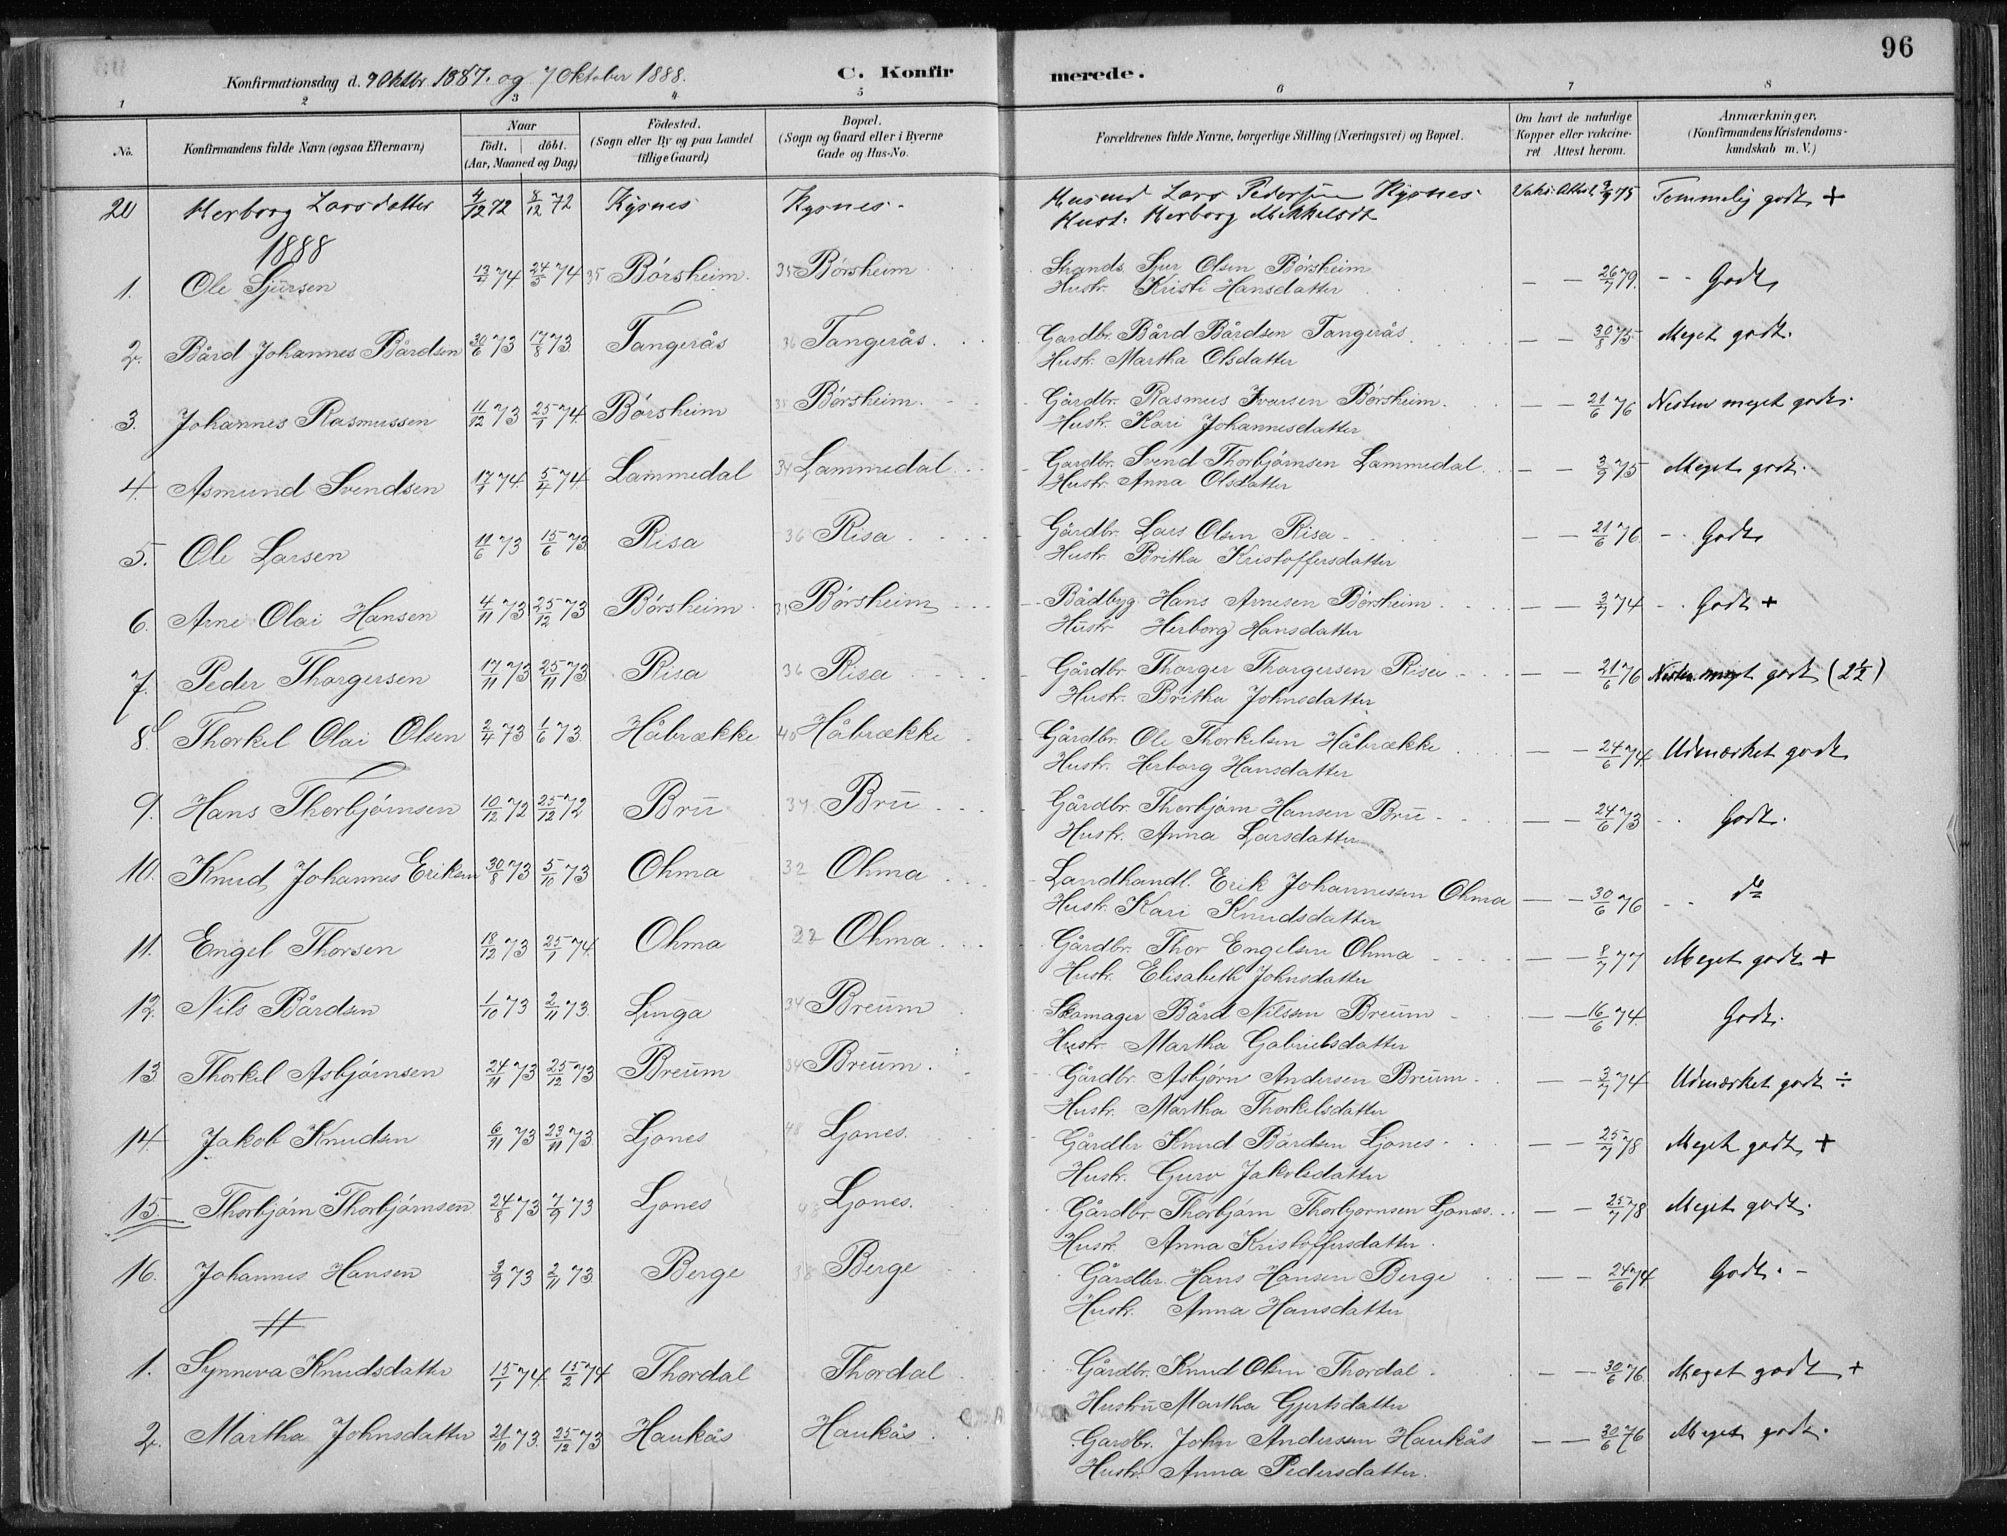 96
Konfirmationsdag d. 9 Oktbr. 1887. og 7 Oktober 1888.
C. Konfirmerede.
1 2 3 4 5 6 7 8
No.
Konfirmandens fulde Navn (ogsaa Efternavn)
Naar
födt. döbt.
(Aar, Maaned og Dag)
Födested.
(Sogn eller By og paa Landet
tillige Gaard)
Bopæl.
(Sogn og Gaard eller i Byerne
Gade og Hus-No.
Forældrenes fulde Navne, borgerlige Stilling (Næringsvei) og Bopæl.
Om havt de naturlige
Kopper eller vakcine-
ret Attest herom.
Anmærkninger,
(Konfirmandens Kristendoms-
kundskab m. V.)
20 Herborg Larsdatter 4/12 72 8/12 72 Kysnes Kysnes. Husmd Lars Pedersen Kysnes. Vaks. Attest 3/9 75 Temmelig godt +
Hust. Herborg Mikkelsdt
1888
1. Ole Sjursen 13/4 74 24/5 74 35 Börsheim. 35 Börsheim Strands. Sjur Olsen Börsheim — — 26/7 79. - - Godt
Hustr. Kristi Hansdatter
2. Bård Johannes Bårdsen 30/6 73 17/8 73. Tangerås 36 Tangerås. Gardbr. Bård Bårdsen Tangerås. — — 30/8 75 Meget godt.
Hustr. Martha Olsdatter
3. Johannes Rasmussen 11/12 73 25/1 74. Börsheim 35 Börsheim. Gårdbr. Rasmus Ivarsen Börsheim. — — 21/6 76 Nesten meget godt.
Hustr. Kari Johannesdatter
4. Asmund Svendsen 17/1 74. 5/4 74 Lammedal 34 Lammedal Gardbr. Svend Thorbjörnsen Lammedal — — 3/9 75 Meget godt.
Hustr. Anna Olsdatter
5. Ole Larsen 11/6 73 15/6 73. Risa 36 Risa Gårdbr. Lars Olsen Risa — — 21/6 76 - - Godt
Hustr. Britha Kristoffersdatter
6. Arne Olai Hansen 4/11 73 25/12 73 Börsheim 35 Börsheim Bådbyg. Hans Arnesen Börsheim — — 3/7 74 - . Godt +
Hustr Herborg Hansdatter
7. Peder Thorgersen 17/11 73 25/11 73 Risa 36 Risa Gårdbr Thorger Thorgersen Risa — — 21/6 76 Nesten meget godt (2½)
Hustr. Britha Johnsdatter
8. Thorkel Olai Olsen 2/4 73 1/6 73. Håbrække 40 Håbrække Gårdbr. Ole Thorkelsen Håbrække — — 24/6 74 Udmærket godt
Hustr. Herborg Hansdatter
9. Hans Thorbjörnsen 10/12 72 25/12 72 Brŭ 34. Brŭ Gårdbr. Thorbjörn Hansen Brŭ — — 24/6 73 Godt.
Hustr. Anna Larsdatter
10. Knud Johannes Eriksen 30/8 73 5/10 73 Ohma 32 Ohma Landhandl. Erik Johannessen Ohma — — 30/6 76 do
Hustr. Kari Knudsdatter
11. Engel Thorsen 18/12 73 25/1 74. Ohma 22 Ohma Gårdbr. Thor Engelsen Ohma — — 8/7 77 Meget godt +
Hustr. Elisabeth Johnsdatter
12. Nils Bårdsen 1/10 73 2/11 73. Linga 34 Breŭm Skomager Bård Nilssen Breŭm — — 16/6 74. Godt.
Hustr. Martha Gabrielsdatter
13 Thorkel Asbjörnsen 24/11 73 25/12 73 Breŭm 34 Breŭm. Gårdbr. Asbjörn Andersen Breŭm. — — 3/7 74 Udmærket godt ÷
Hustr. Martha Thorkelsdatter
14. Jakob Knudsen 6/11 73 23/11 73 Ljones 48 Ljones. Gårdbr Knud Bårdsen Ljones. — — 25/7 78 Meget godt +
Hustr. Guro Jakobsdatter
15. Thorbjörn Thorbjörnsen 24/8 73 7/9 73 Ljones 48 Ljones. Gårdbr Thorbjörn Thorbjornsen Ljones. — — 25/7 78 Meget godt.
Hustr. Anna Kristoffersdatter.
16. Johannes Hansen 3/9 73 2/11 73. Berge 38 Berge Gårdbr. Hans Hansen Berge — — 24/6 74 Godt. -
Hustr. Anna Hansdatter
1. Synneva Knudsdatter 15/1 74. 15/2 74 Thordal Thordal Gårdbr. Knud Olsen Thordal. — — 30/6 76. Meget godt +
Hustru Martha Gjertsdatter
2. Martha Johnsdatter 21/10 73. 25/12 73 Haukås Haukås Gardbr. John Anderssen Haukås — — 30/6 76 Meget godt.
Hustr. Anna Pedersdatter.